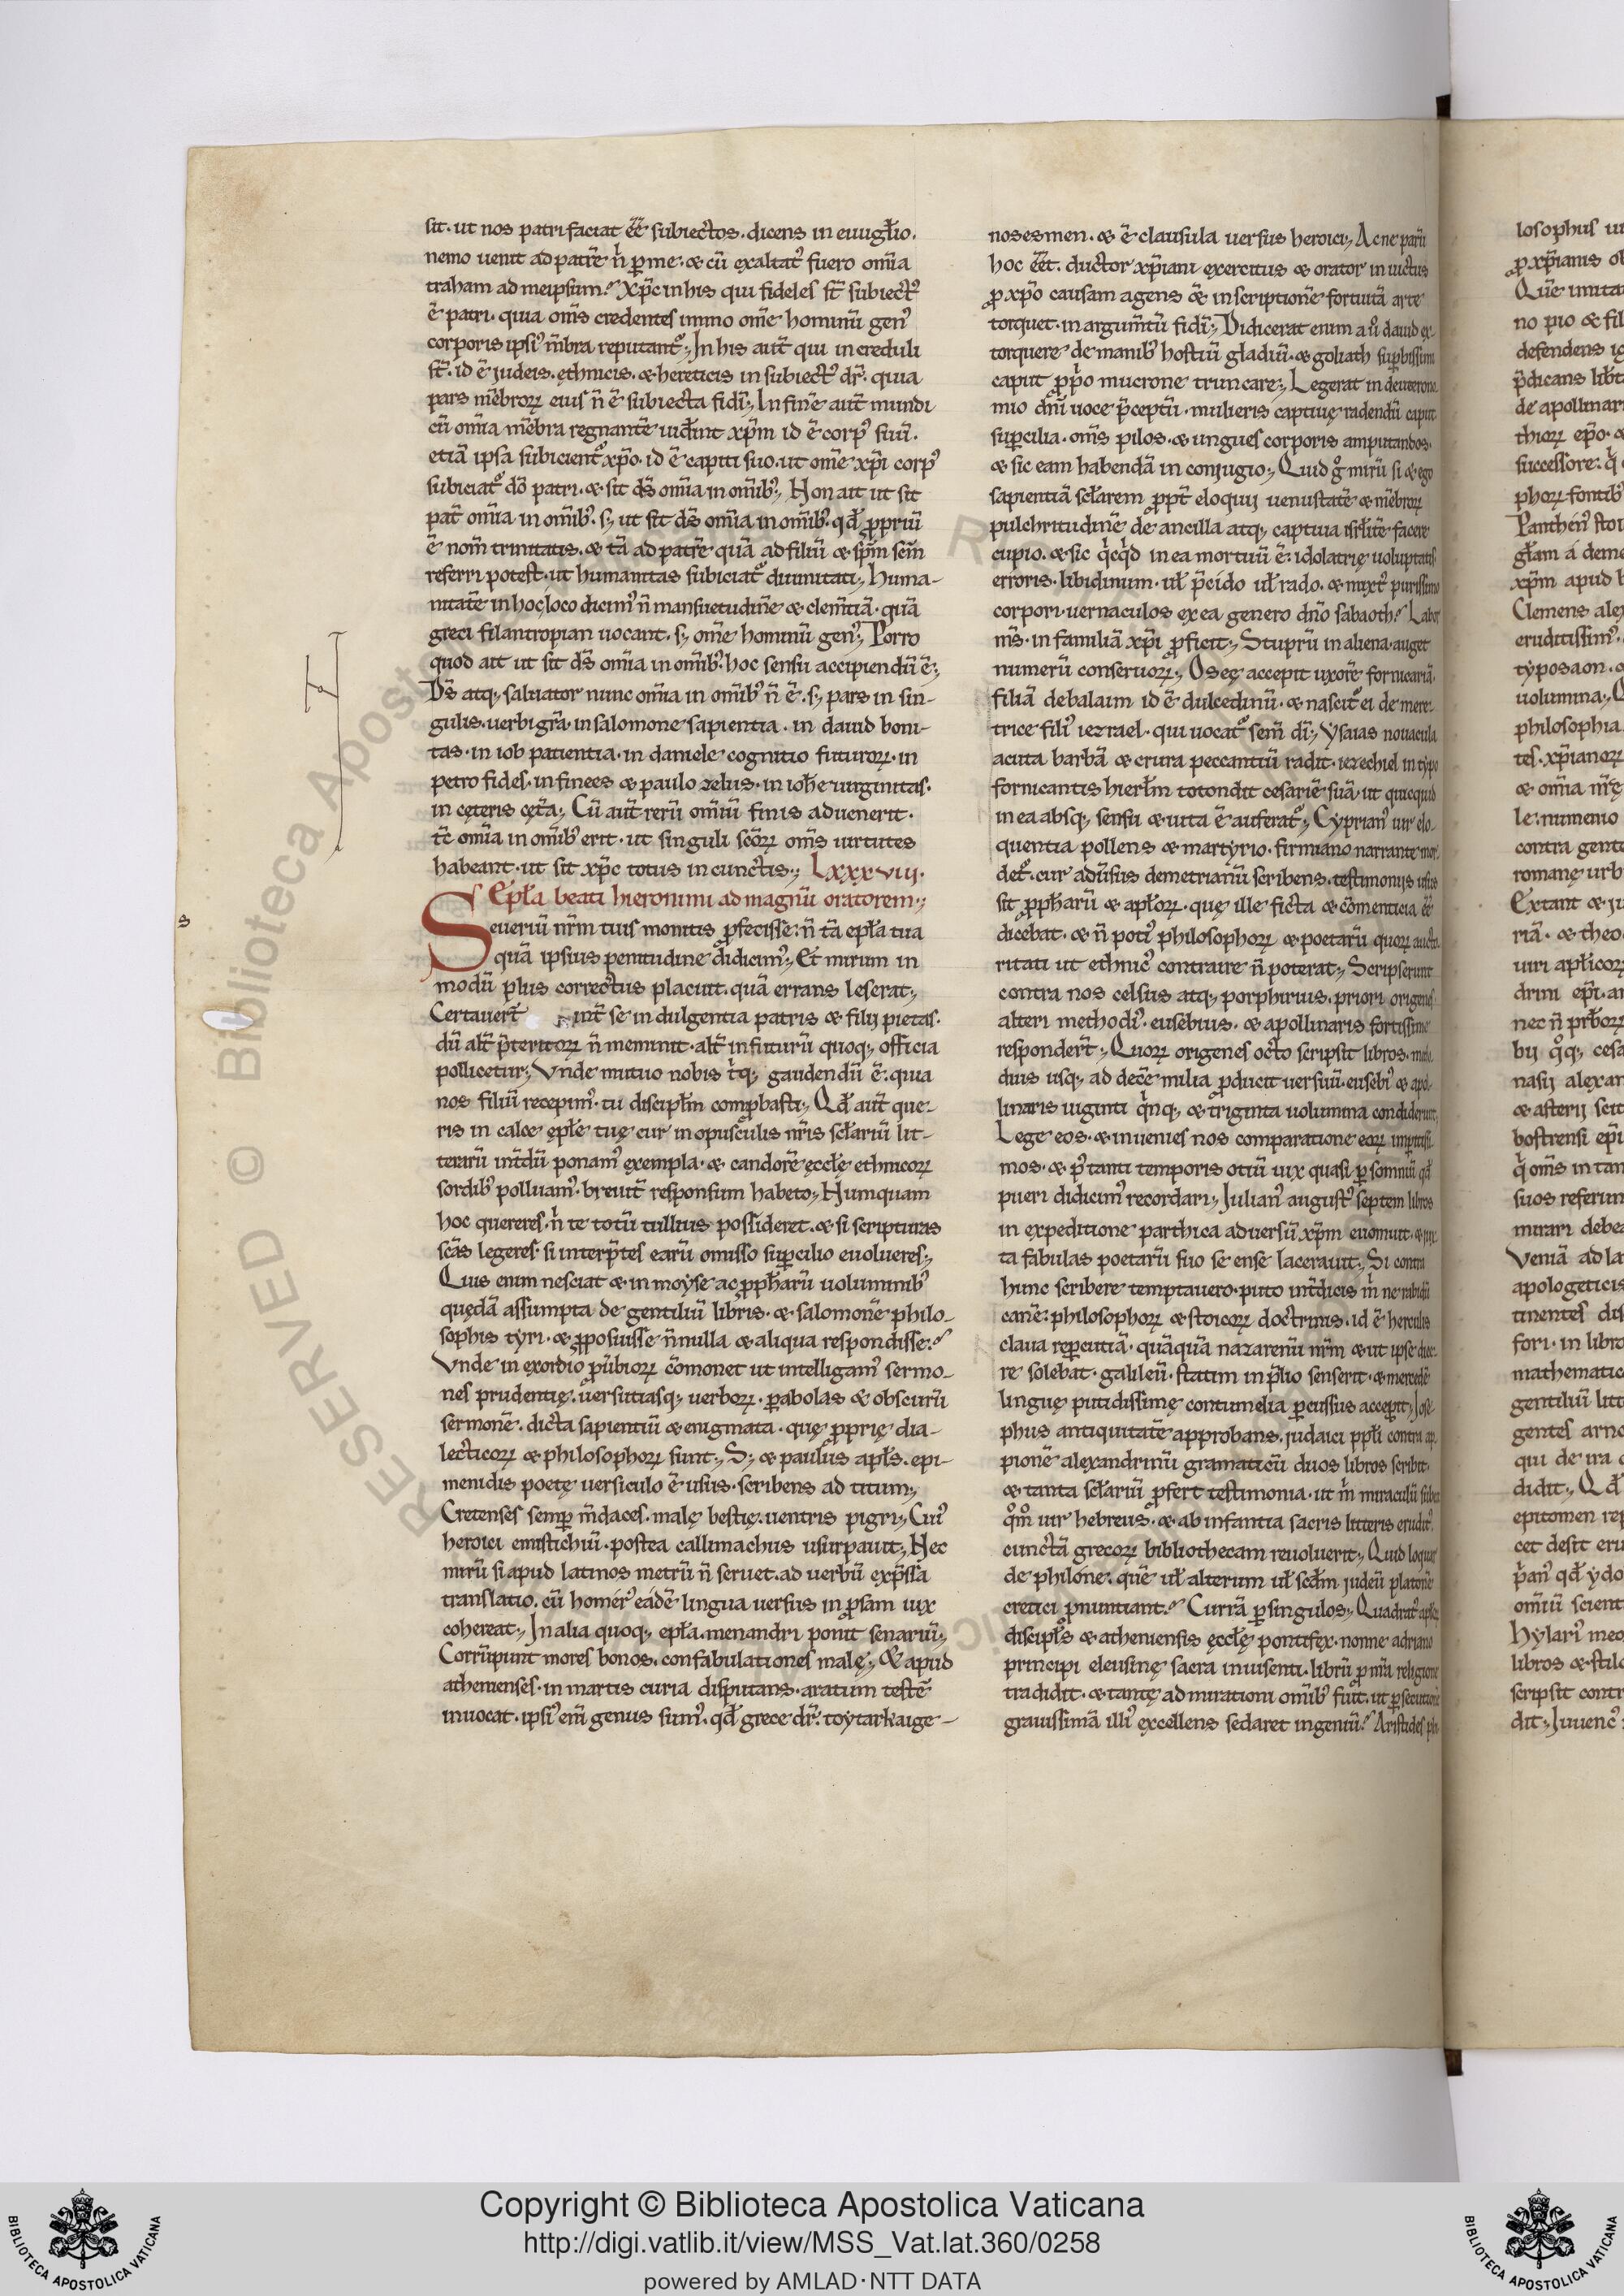 sit. ut nos patri faciat ee͂ subiectos. dicens in euuglio.
nemo uenit ad patre͂ n͛ p me. & cu͂ exaltat᷒ fuero om͂ia
traham ad meipsum. Xp͂c in his qui fideles st͂ subiect᷒
e͂ patri. quia om͂s credentes immo om͂e hominu͂ gen᷒
corporis ipsi᷒ m͂bra reputant᷒. In his aut͂ qui increduli
st͂. id e͂ judeis. ethnicis. & hereticis insubiect᷒ dr͂. quia
pars me͂broꝝ eius n͂ e͂ subiecta fidi͂. In fine aut͂ mundi
cu͂ om͂ia me͂bra regnante͂ uid͂int xp͂m id e͂ corp᷒ suu͂.
etia͂ ipsa subicient᷒ xp͂o. id e͂ capiti suo. ut om͂e xp͂i corp᷒
subiciat᷒ do͂ patri. & sit ds͂ om͂ia in om͂ib᷒. Non ait ut sit
pat͂ om͂ia in om͂ib᷒. s; ut sit ds͂ om͂ia in om͂ib᷒. qd͂ ꝓpriu͂
e͂ nom͂ trinitatis. & ta͂ ad patre͂ qua͂ ad filiu͂ & sp͂m sc͂m
referri potest. ut humanitas subiciat᷒ diuinitati. Huma-
nitate͂ in hoc loco dicim᷒ n͂ mansuetudine͂ & clem͂tia͂. qua͂
greci filantropian uocant. s; om͂e hominu͂ gen᷒. Porro
quod ait ut sit ds͂ om͂ia in om͂ib᷒. hoc sensu accipiendu͂ e͂.
Ds͂ atq; saluator nunc om͂ia in om͂ib᷒ n͂ e͂. s; pars in sin-
gulis. uerbi gra͂. in salomone sapientia. in dauid boni-
tas. in iob patientia. in daniele cognitio futuroꝝ. in
petro fides. in finees & paulo zelus. in ioh͂e uirginitas.
in ceteris cet͂a. Cu͂ aut͂ reru͂ om͂iu͂ finis aduenerit.
tc͂ om͂ia in om͂ib᷒ erit. ut singuli sc͂oꝝ om͂s uirtutes
habeant. ut sit xp͂c totus in cunctis. Lxxxviij.
Epl͂a beati hieronimi ad magnu͂ oratorem.
Seueriu͂ nr͂m tuis monitis ꝓfecisse. n͂ ta͂ epl͂a tua
qua͂ ipsius penitudine didicim᷒. Et mirum in
modu͂ plus correctus placuit. qua͂ errans leserat.
Certauer͂t int͂ se indulgentia patris & filij pietas.
du͂ alt͂ p͂teritoꝝ n͂ meminit. alt͂ in futuru͂ quoq; officia
pollicetur. Vnde mutuo nobis t͛q; gaudendu͂ e͂. quia
nos filiu͂ recepim᷒. tu discipl͂m comꝓbasti. Qd͂ aut͂ que-
ris in calce epl͂e tuę cur in opusculis nr͂is scl͂ariu͂ lit-
teraru͂ int͂du͂ ponam᷒ exempla. & candore͂ eccl͂e ethnicoꝝ
sordib᷒ polluam᷒. breuit͂ responsum habeto. Numquam
hoc quereres. n͛ te totu͂ tullius possideret. & si scripturas
sc͂as legeres. si interp͂tes earu͂ omisso suꝑcilio euolueres.
Quis enim nesciat & in moyse ac ꝓph͂aru͂ uoluminib᷒
queda͂ assumpta de gentiliu͂ libris. & salomone͂ philo-
sophis tyri. & ꝓposuisse n͂nulla & aliqua respondisse.
Vnde in exordio ꝓubioꝝ co͂monet ut intelligam᷒ sermo-
nes prudentię. uersutiasq; uerboꝝ. ꝑabolas & obscuru͂
sermone͂. dicta sapientiu͂ & enigmata. quę ꝓprię dia-
lecticoꝝ & philosophoꝝ sunt. S; & paulus apl͂s. epi-
menidis poetę uersiculo e͂ usus. scribens ad titum.
Cretenses semꝑ m͂daces. malę bestię. uentris pigri. Cui᷒
heroici emistichiu͂. postea callimachus usurpauit. Nec
miru͂ si apud latinos metru͂ n͂ seruet. ad uerbu͂ exp͂ssa
translatio. cu͂ homer᷒ eade͂ lingua uersus in ꝓsam uix
cohereat. In alia quoq; epl͂a. menandri ponit senariu͂.
Corru͂punt mores bonos. confabulationes malę. & apud
athenienses. in martis curia disputans. aratum teste͂
inuocat. ipsi᷒ em͂ genus sum᷒. qd͂ grece dr͂. toytarkaige-
nosesmen. & e͂ clausula uersus heroici. Ac ne paru͂
hoc ee͂t. ductor xp͂iani exercitus & orator inuictus
ꝓ xp͂o causam agens & inscriptione͂ fortuita͂ arte
torquet. in argum͂tu͂ fidi͂. Didicerat enim a u᷒ dauid ex-
torquere de manib᷒ hostiu͂ gladiu͂. & goliath suꝑbissimi
caput ꝓp͛o mucrone truncare. Legerat in deuterono-
mio dn͂i uoce p͂ceptu͂. mulieris captiuę radendu͂ caput
suꝑcilia. om͂s pilos. & ungues corporis amputandos.
& sic eam habenda͂ in conjugio. Quid g᷒ miru͂ si & ego
sapientia͂ scl͂arem ꝓpt͂ eloquij uenustate͂ & me͂broꝝ
pulchritudine͂ de ancilla atq; captiua isrl͂ite͂ facere
cupio. & sic q͛cq͛d in ea mortuu͂ e͂. idolatrię uoluptatis
erroris. libidinum. ul͂ p͂cido ul͂ rado. & mixt᷒ purissimo
corpori. uernaculos ex ea genero dn͂o sabaoth. Labor
m͂s. in familia͂ xp͂i ꝓficit. Stupru͂ in aliena. auget
numeru͂ conseruoꝝ. Osee accepit uxore͂ fornicaria͂.
filia͂ debalaim id e͂ dulcedinu͂. & nascit᷒ ei de mere-
trice fili᷒ iezrael. qui uocat᷒ sem͂ di͂. Ysaias nouacula
acuta barba͂ & crura peccantiu͂ radit. iezechiel in typo
fornicantis hierl͂m totondit cesarie͂ sua͂. ut quicquid
in ea absq; sensu & uita e͂ auferat᷒. Cyprian᷒ uir elo-
quentia pollens & martyrio. firmiano narrante mor-
det᷒. cur adu͂sus demetrianu͂ scribens. testimonijs usus
sit ꝓph͂aru͂ & apl͂oꝝ. quę ille ficta & co͂menticia ee͂
dicebat. & n͂ poti᷒ philosophoꝝ & poetaru͂ quoꝝ aucto-
ritati ut ethnic᷒ contraire n͂ poterat. Scripserunt
contra nos celsus atq; porphirius. priori origenes
alteri methodi᷒. eusebius. & apollinaris fortissime
responder͂t. Quoꝝ origenes octo scripsit libros.
duis usq; ad dece͂ milia ꝓducit uersuu͂. eusebi᷒ & apol-
linaris uiginti q͛nq; & triginta uolumina condiderunt.
Lege eos. & inuenies nos comparatione eoꝝ imperitissi-
mos. & p᷒ tanti temporis otiu͂ uix quasi ꝑ somniu͂ qd͂
pueri didicim᷒ recordari. Julian᷒ august᷒ septem libros
in expeditione parthica aduersu͂ xp͂m euomuit. & iux-
ta fabulas poetaru͂ suo se ense lacerauit. Si contra
hunc scribere temptauero. puto int͂dicis m͛ ne rabidu͂
cane͂. philosophoꝝ & stoicoꝝ doctrinis. id e͂ herculis
claua reꝑcutia͂. qua͂qua͂ nazarenu͂ nr͂m & ut ipse dice-
re solebat. galileu͂. statim in p͂lio senserit. & mercede͂
linguę putidissimę contumelia ꝑcussus acceperit. Jose-
phus antiquitate͂ approbans. judaici ppl͂i contra ap-
pione͂ alexandrinu͂ gramaticu͂ duos libros scribit.
& tanta scl͂ariu͂ ꝓfert testimonia. ut m͛ miraculu͂ subeat
q᷒m᷒ uir hebreus. & ab infantia sacris litteris erudit᷒.
cuncta͂ grecoꝝ bibliothecam reuoluerit. Quid loquar
de philone. que͂ ul͂ alterum ul͂ scd͂m judeu͂ platone͂
cretici ꝓnuntiant. Curra͂ ꝑ singulos. Quadrat᷒
discipl͂s & atheniensis eccl͂ę pontifex. nonne adriano
principi eleusinę sacra inuisenti. libru͂ ꝓ nr͂a religione
tradidit. & tantę admirationi om͂ib᷒ fuit. ut ꝑsecutione͂
grauissima͂ illi᷒ excellens sedaret ingeniu͂. Aristides ph
s
losophus
ꝓ xp͂ianis
Que͂ imita
no pio & fil
defendens
p͂dicans lib
de apollinar
thioꝝ ep͂o.
successore.
phoꝝ fontib᷒
Panthen᷒ stoi
gl͂am a deme
xp͂m apud
Clemens ale
eruditissim᷒
typosaon.
uolumina.
philosophia
tes. xp͂ianoꝝ
& om͂ia nr͂ę
le. numenio
contra gente
romanę urb
Extant &
ria͂. & theo
uiri apl͂icoꝝ
drini ep͂i.
nec n͂
bij q᷒q; cesa
nasij alexan
& asterij
bostrensi ep͂i
q͛ om͂s in tan
suos referun
mirari debe
Venia͂ ad la
apologeticis
tinentes dis
fori. in libro
mathematic
gentiliu͂ litt
gentes arno
qui de ira
didit. Qd͂
epitomen
cet desit eru
p͛an᷒ qd͂ ydo
om͂iu͂ scient
Hylari᷒ meo
libros & stil
scripsit contr
dit. Juuenc᷒
RESERVED © Biblioteca Apostolica
Copyright © Biblioteca Apostolica Vaticana
http://digi.vatlib.it/view/MSS_Vat.lat.360/0258
powered by AMLAD·NTT DATA
BIBLIOTECA APOSTOLICA VATICANA
BIBLIOTECA APOSTOLICA VATICANA